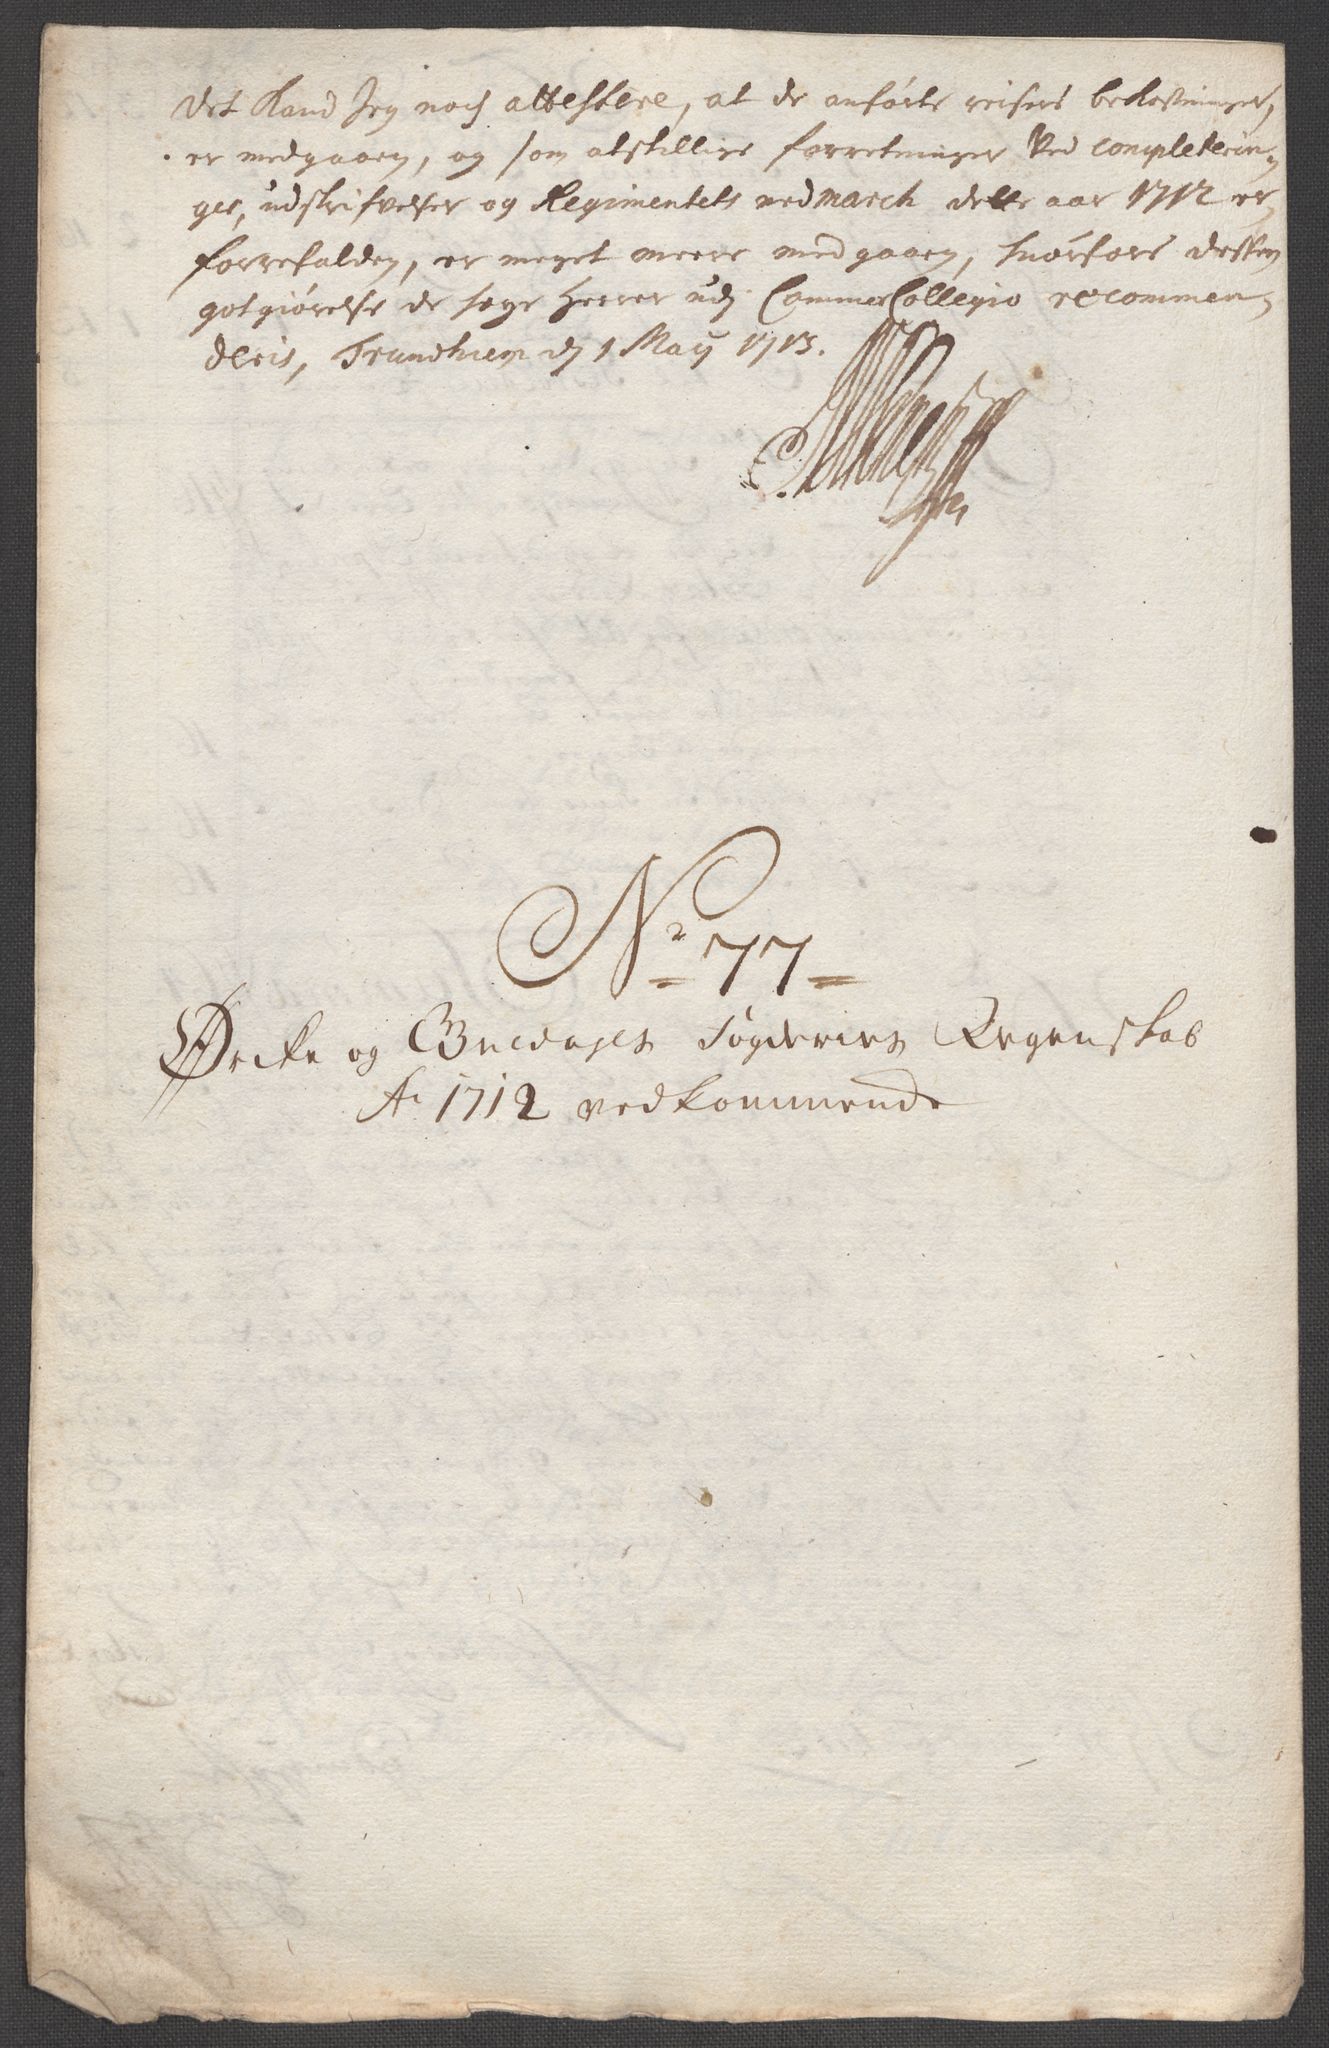 Det Kand Jeg noch attestere, at de anförte reisers bekostninger,
er medgaaen, og som atskillige forretninger Ved completerin-
ger, udskrifvelser og Regimentets nedmarch dette aar 1712 er
forrefalden, er meget meere medgaaen, hvorfore dessen
gotgiörelse de höye Herrer udj CammerCollegio recommen-
deris, Trundhiem dj 1 Maij 1713.
No 77
Ørcke og Guldahls Fögderiers Regenskab
Ao 1712 vedkommende